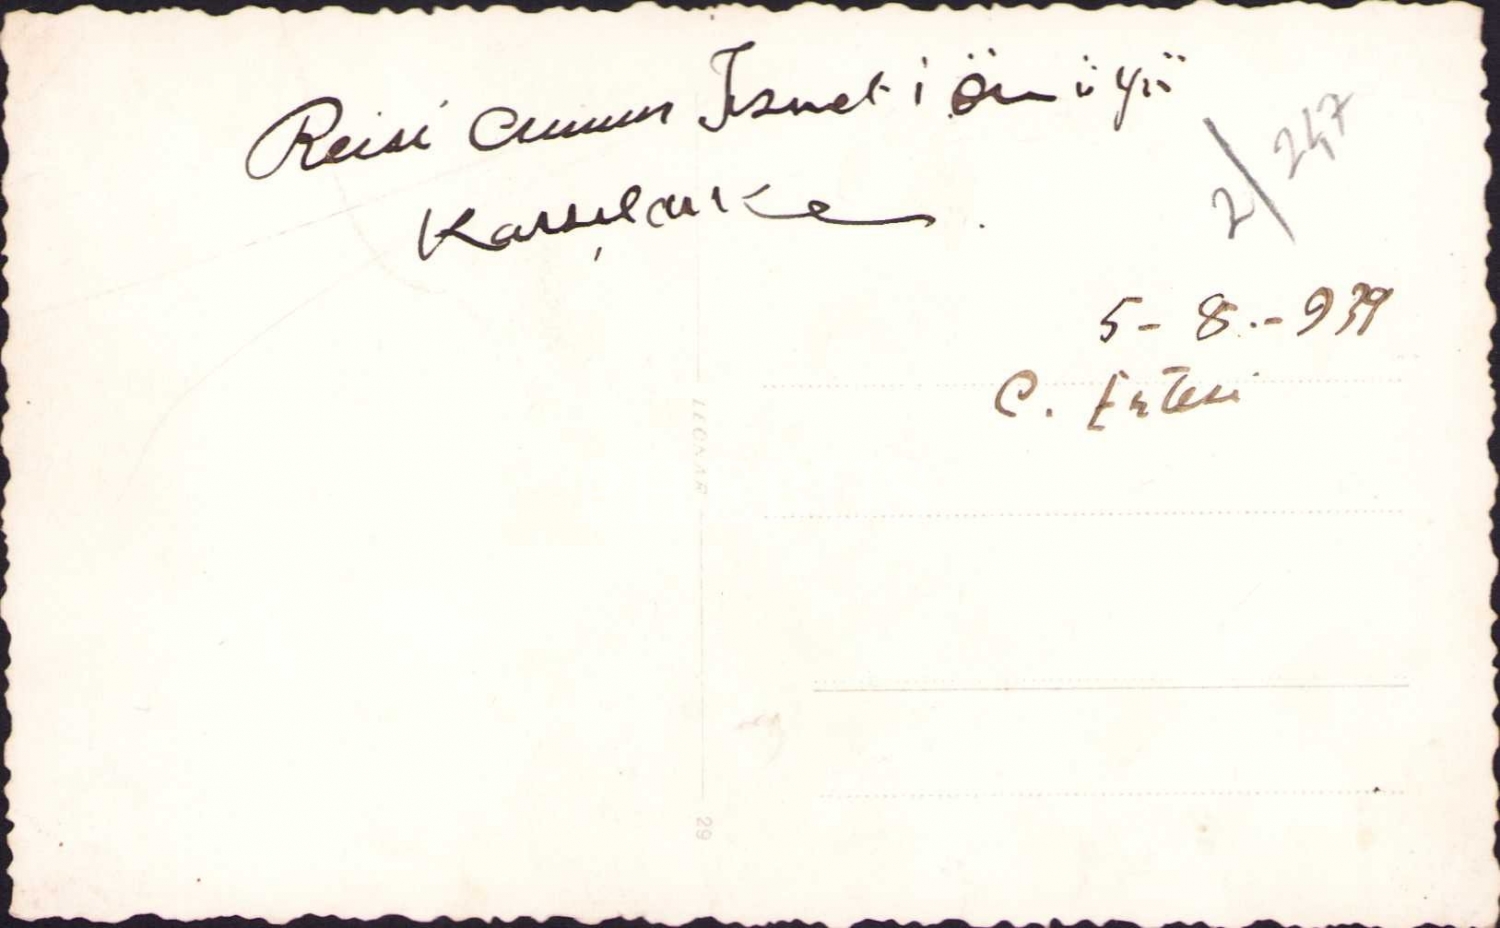 Reisi cumur İsmet i önüyü
Karşılarke
2/247
5-8-939
C. Ertesi
LEONAR
29